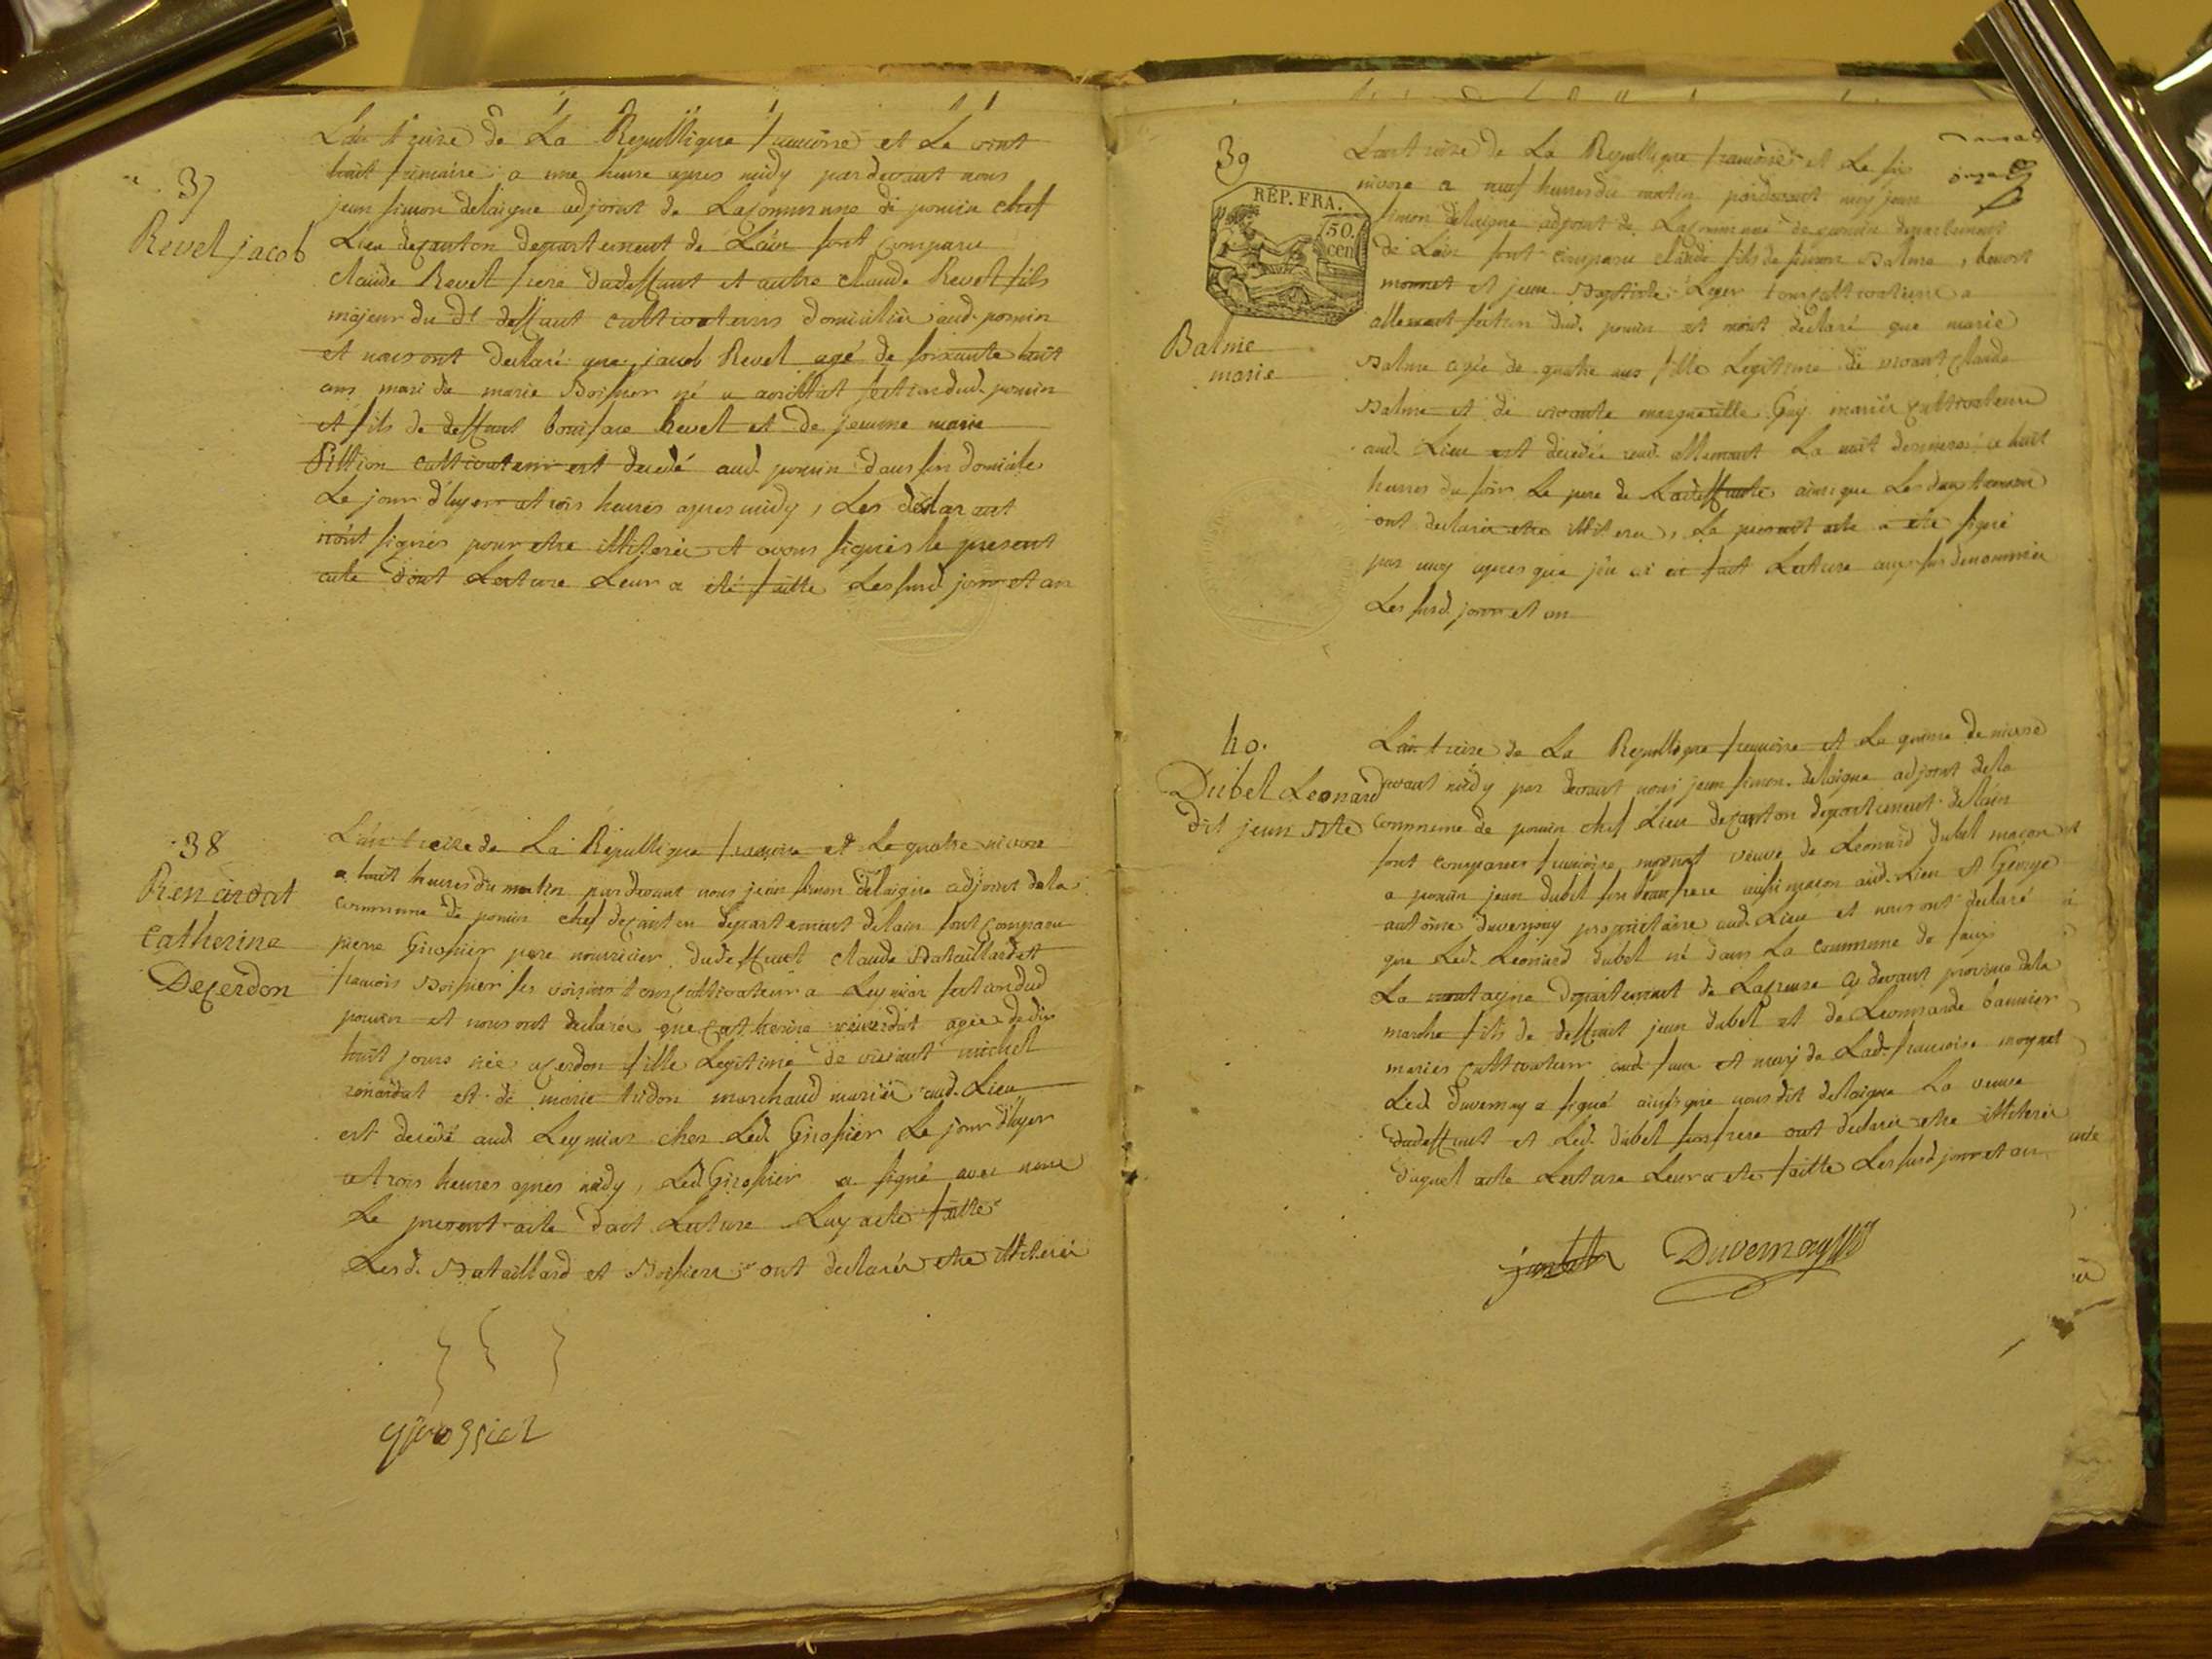 37
Revel jacob
L'an treize de La Republique francoise et Le vint
huit frimaire a une heure apres midy pardevant nous
jean simon delaigue adjoint de La commune de poncin chef
Lieu de canton departement de L'ain sont comparu
claude Revel frere du deffunt et autre claude Revel fils
majeur du dt deffunt cultivateurs domiciliés aud. poncin
et nous ont declaré que jacob Revel agé de soixante huit
ans mari de marie Boissier né a section dud. poncin
et fils de deffunt boniface Revel et de jeanne marie
Pittion cultivateur est decedé aud. poncin dans son domicile
Le jour d'hyer a trois heures apres midy, Les declarant
n'ont signés pour etre illiterés et avons signés le present
acte dont Lecture Leur a eté faitte Les susd. jour et an
38
Renardat
catherine
De cerdon
L'an treize de La Republique francoise et Le quatre nivose
a huit heures du matin pardevant nous jean simon delaigue adjoint de la
commune de poncin chef de canton departement de l'ain sont comparu
pierre Girossier pere nourricier du deffunt claude Bataillard et
francois Boissier ses voisins tous cultivateurs a Leymiar section dud
poncin et nous ont declarés que catherine renardat agée de dix
huit jours née a cerdon fille Legitime de vivant michel
renardat et de marie tridon marchand mariés aud. Lieu
est decedé aud Leymiar chez Led. Girossier Le jour d'hyer
a trois heures apres midy, Led Girossier a signé avec nous
Le present acte dont Lecture Luy a ete faitte
Lesd. Bataillard et Boissier ont declarés etre illiterés
gyrossier
39
REP. FRA.
50.
cen
Balme
marie
L'an treize de La Republique francoise et Le six
nivose a neuf heures du matin pardevant moy jean
simon delaigue adjoint de La commune de poncin departement
de L'ain sont comparu claude fils de simon Balme, benoit
monnet et jean Baptiste Leger tous cultivateurs a
allement section dud. poncin et m'ont declaré que marie
Balme agée de quatre ans fille Legitime de vivant claude
Balme et de vivante margueritte Guy mariés cultivateurs
aud. Lieu est decedée aud. allement La nuit derniere a huit
heures du soir Le pere de La deffunte ainsi que Les deux temoins
ont declarés etre illiterés, Le present acte a ete signé
par moy apres que j'en ai fait Lecture aux sus denommés
Les susd. jour et an
40.
Dubel Leonard
dit jean Bte
L'an treize de La Republique francoise et Le quinze de nivose
avant midy par devant nous jean simon delaigue adjoint de la
commune de poncin chef Lieu de canton departement de l'ain
sont comparus francoise moynat veuve de Leonard dubel maçon
a poncin jean dubel son beau frere aussi maçon aud. Lieu et George
antoine duvernay proprietaire aud. Lieu et nous ont declaré
que Led. Leonard dubel né dans La commune de faux
La montagne departement de La creuse cy devant province de la
marche fils de deffunt jean dubel et de Leonnarde bannier
mariés cultivateurs aud. faux et mary de Lad. francoise moynat
Led. duvernay a signé ainsi que nous dit delaigue La veuve
du deffunt et Led. dubel son frere ont declarés etre illiterés
duquel acte Lecture Leur a ete faitte Les susd jour et an
Duvernay